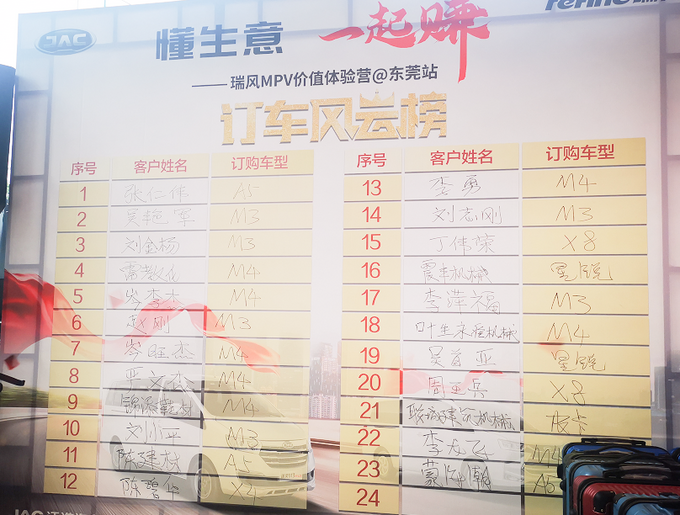 JAC
懂生意 一起赚
—— 瑞风MPV价值体验营@东莞站
订车风云榜
序号 客户姓名 订购车型
1 张仁伟 A5
2 吴艳宁 M3
3 刘金杨 M3
4 M4
5 岑李杰 M4
6 赵刚 M3
7 岑旺杰 M4
8 严文杰 M4
9 M4
10 刘小江 M3
11 陈建权 A5
12 陈碧华 X4
序号 客户姓名 订购车型
13 李勇 M4
14 刘志刚 M3
15 丁伟荣 X8
16 震丰机械 星锐
17 李萍福 M3
18 M4
19 吴首亚 星锐
20 周亚兵 X8
21 皮卡
22 李友飞 M4
23 A5
24
JAC